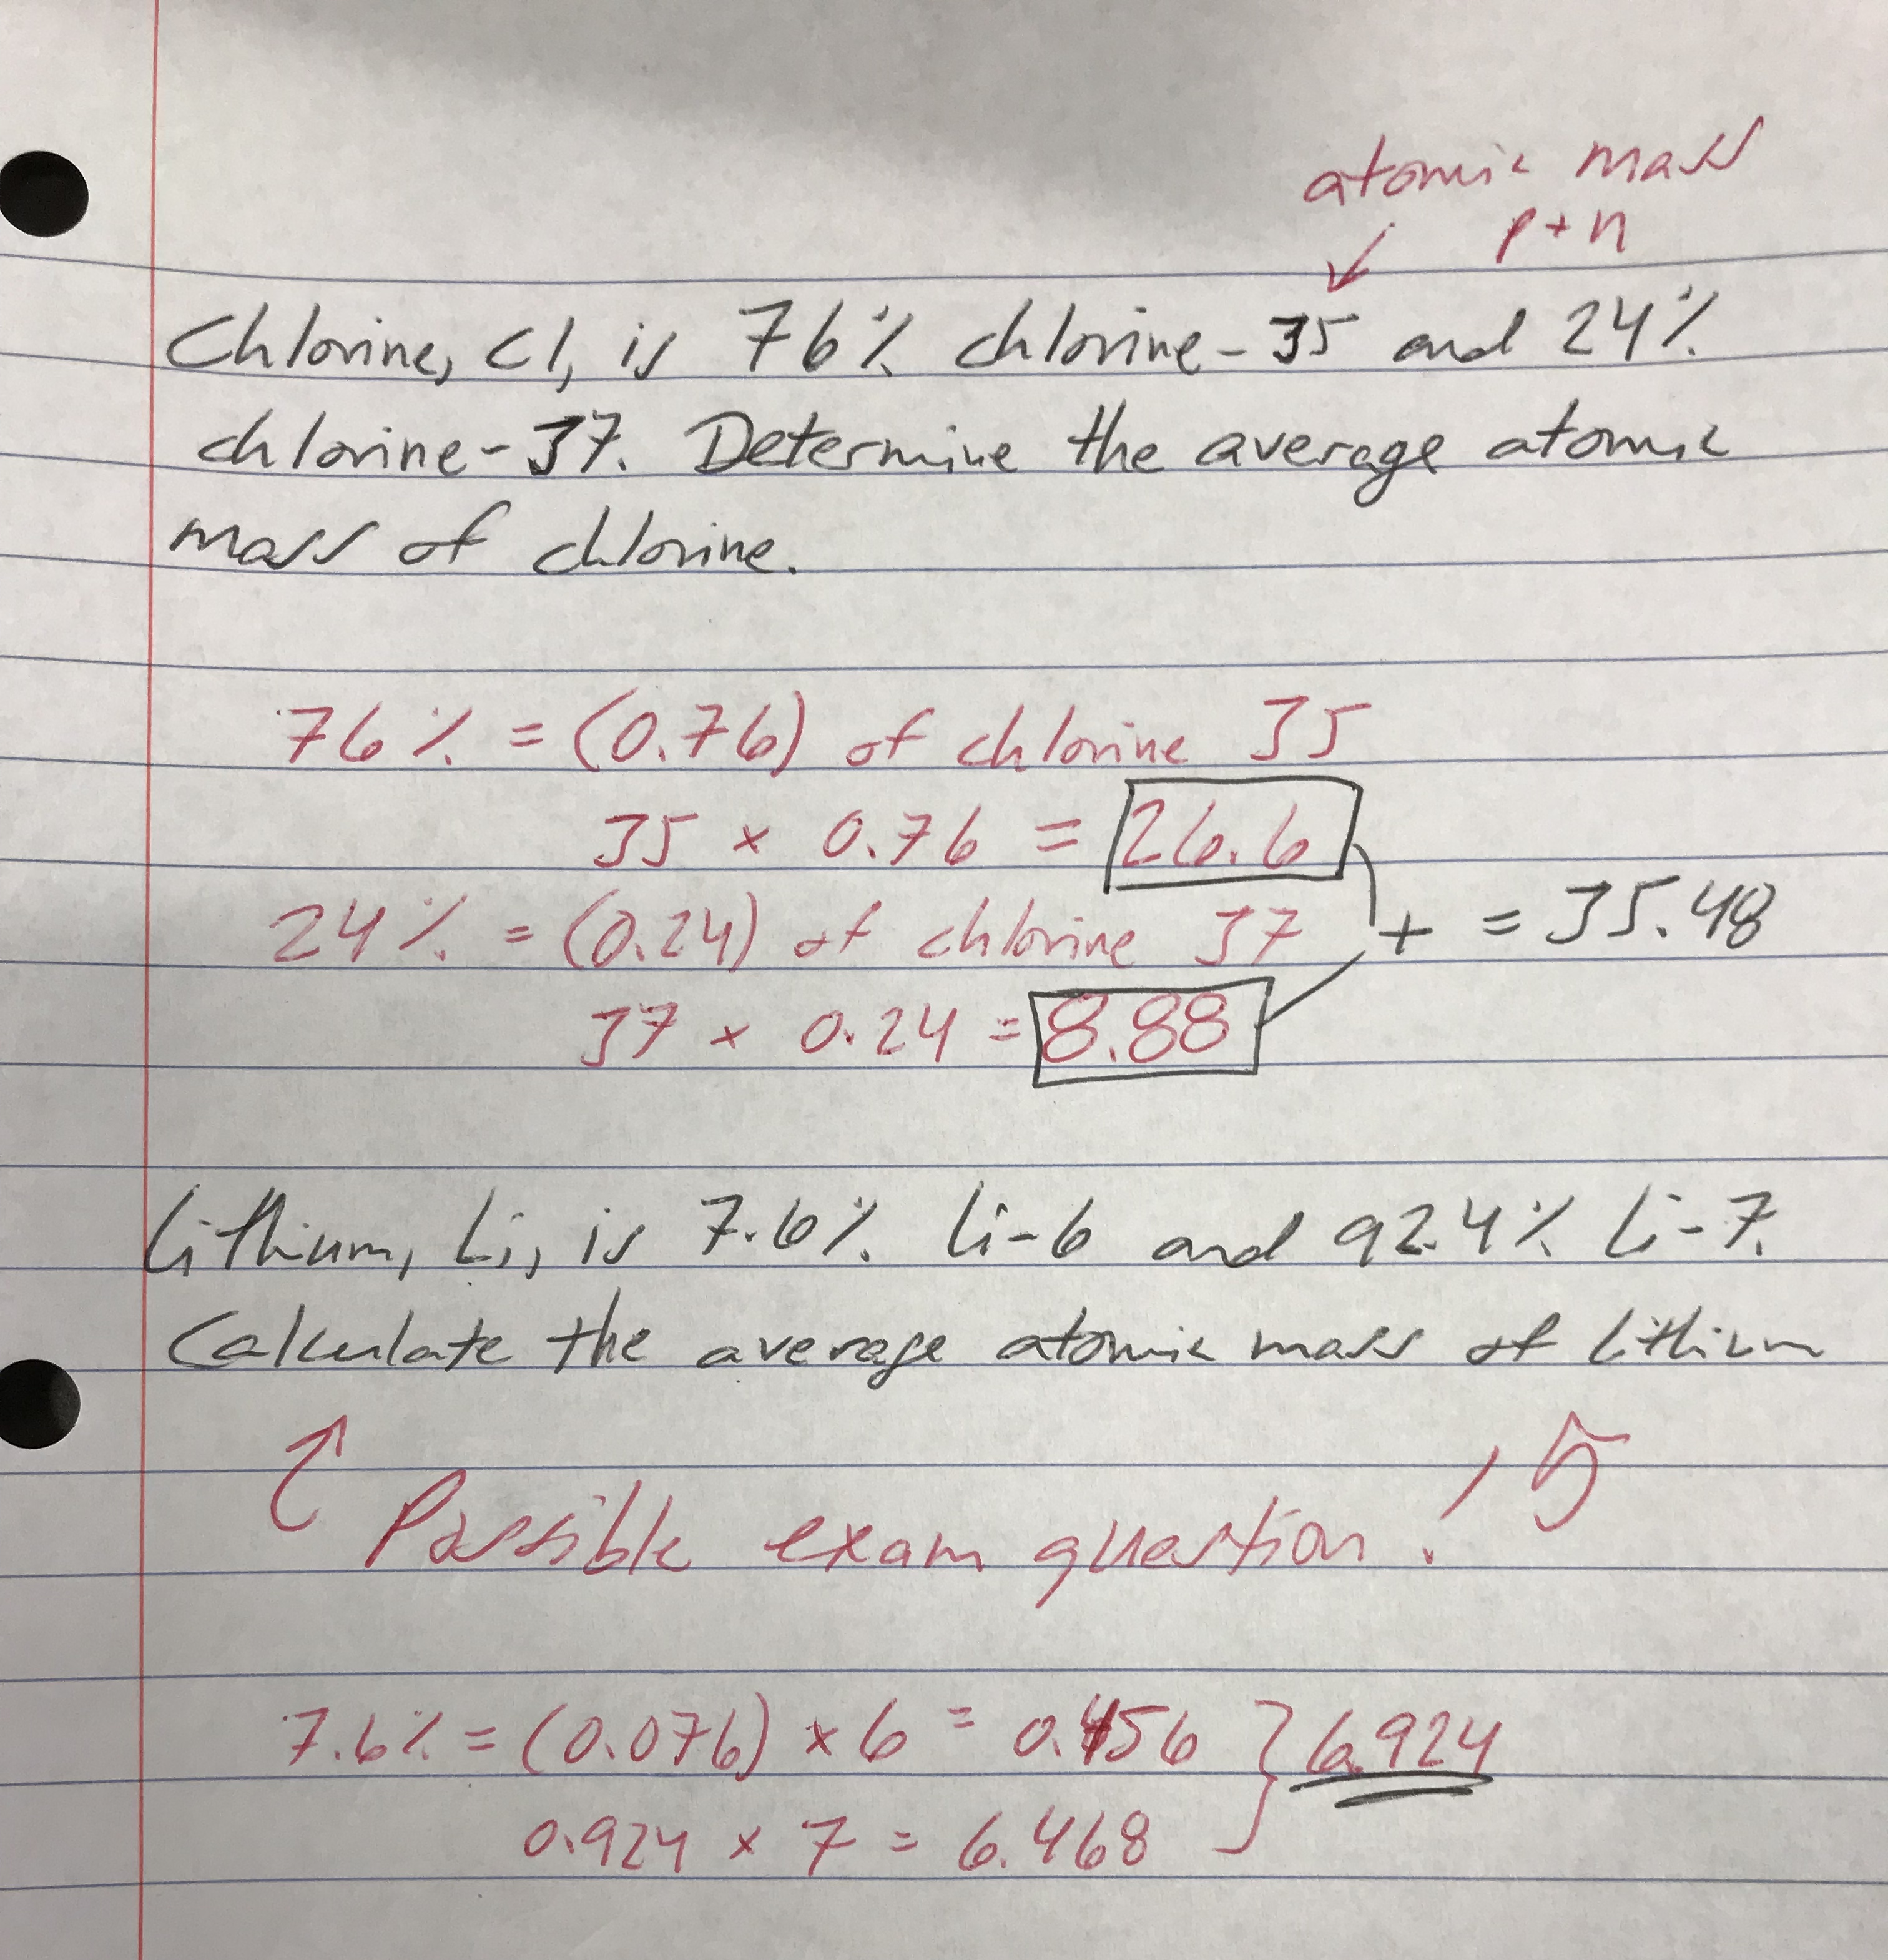 atomic mass
p + n
Chlorine, Cl, is 76% chlorine-35 and 24%
chlorine-37. Determine the average atomic
mass of chlorine.
76% = (0.76) of chlorine 35
35 x 0.76 = 26.6
24% = (0.24) of chlorine 37
+ = 35.48
37 x 0.24 = 8.88
Lithium, Li, is 7.6% Li-6 and 92.4% Li-7.
Calculate the average atomic mass of Lithium
Possible exam question!
7.6% = (0.076) x 6 = 0.456 } 6.924
0.924 x 7 = 6.468